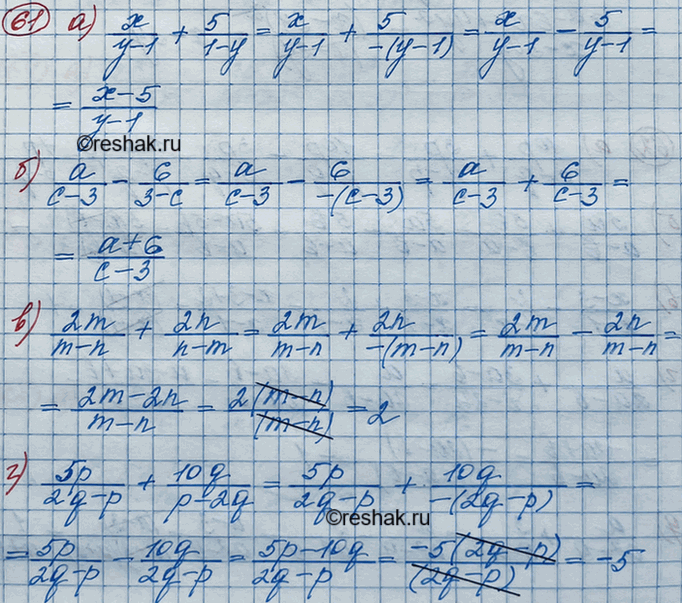 61 а) x/(y-1) + 5/(1-y) = x/(y-1) + 5/(-(y-1)) = x/(y-1) - 5/(y-1) =
= (x-5)/(y-1)
©reshak.ru
б) a/(c-3) - 6/(3-c) = a/(c-3) - 6/(-(c-3)) = a/(c-3) + 6/(c-3) =
= (a+6)/(c-3)
в) 2m/(m-n) + 2n/(n-m) = 2m/(m-n) + 2n/(-(m-n)) = 2m/(m-n) - 2n/(m-n) =
= (2m-2n)/(m-n) = 2(m-n)/(m-n) = 2
г) 5p/(2q-p) + 10q/(p-2q) = 5p/(2q-p) + 10q/(-(2q-p)) =
©reshak.ru
= 5p/(2q-p) - 10q/(2q-p) = (5p-10q)/(2q-p) = -5(2q-p)/(2q-p) = -5